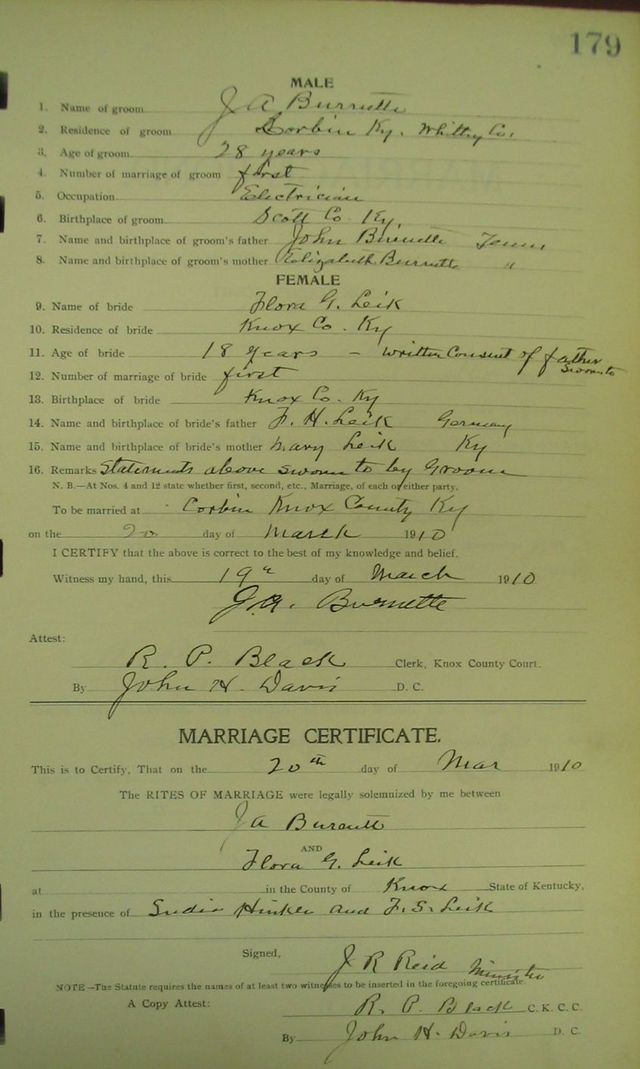 179
MALE
1. Name of groom J A Burnette
2. Residence of groom Corbin Ky. Whitley Co.
3. Age of groom 28 years
4. Number of marriage of groom first
5. Occupation Electrician
6. Birthplace of groom Scott Co Ky.
7. Name and birthplace of groom's father John Burnette Tenn
8. Name and birthplace of groom's mother Elizabeth Burnette "
FEMALE
9. Name of bride Flora G. Leik
10. Residence of bride Knox Co. Ky
11. Age of bride 18 years – written Consent of father sworn to
12. Number of marriage of bride first
13. Birthplace of bride Knox Co. Ky
14. Name and birthplace of bride's father F. H. Leik Germany
15. Name and birthplace of bride's mother Mary Leik Ky
16. Remarks Statements above sworn to by Groom
N. B.—At Nos. 4 and 12 state whether first, second, etc., Marriage, of each or either party.
To be married at Corbin Knox County Ky
on the 20 day of March 1910
I CERTIFY that the above is correct to the best of my knowledge and belief.
Witness my hand, this 19th day of March 1910
J.A. Burnette
Attest:
R. P. Black Clerk, Knox County Court.
By John H. Davis D. C.
MARRIAGE CERTIFICATE.
This is to Certify, That on the 20th day of Mar 1910
The RITES OF MARRIAGE were legally solemnized by me between
J A Burnett
AND
Flora G. Leik
at in the County of Knox State of Kentucky,
in the presence of Hinkle and F. S. Leik
Signed, J R Reid Minister
NOTE—The Statute requires the names of at least two witnesses to be inserted in the foregoing certificate.
A Copy Attest: R. P. Black C. K. C. C.
By John H. Davis D. C.